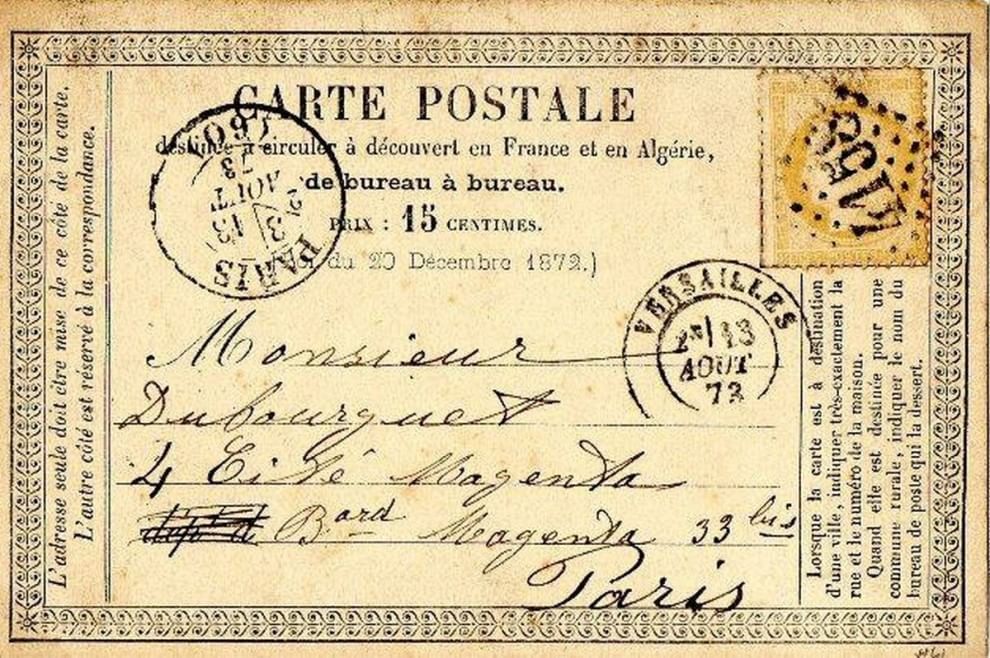 CARTE POSTALE
destinée à circuler à découvert en France et en Algérie,
de bureau à bureau.
PRIX : 15 CENTIMES.
du 20 Décembre 1872.)
PARIS
13
AOUT
73
(60)
4158
VERSAILLES
13
AOUT
73
Monsieur
Dubourguet
4 Cité Magenta
Bard Magenta 33 bis
Paris
L'adresse seule doit être mise de ce côté de la carte.
L'autre côté est réservé à la correspondance.
Lorsque la carte est à destination
d'une ville, indiquer très-exactement la
rue et le numéro de la maison.
Quand elle est destinée pour une
commune rurale, indiquer le nom du
bureau de poste qui la dessert.